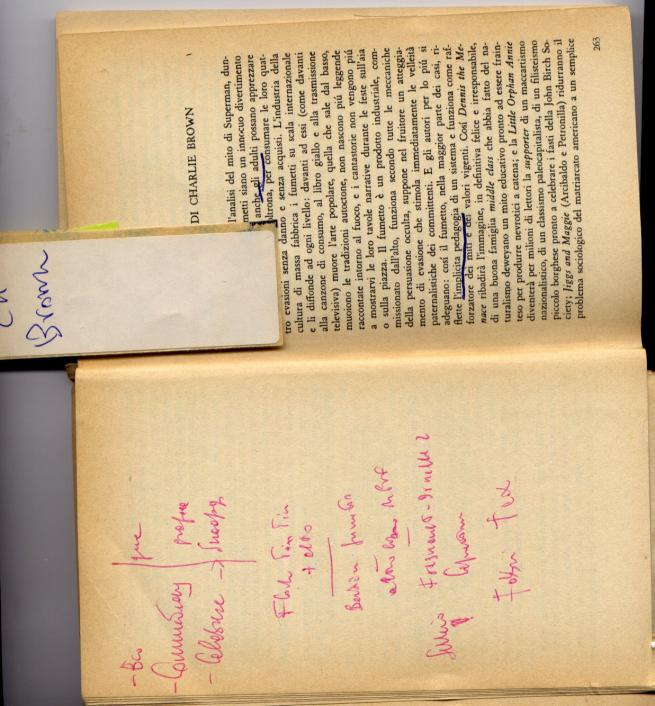 - Eco
- Commentary
- Celebre → Snoopy
Flash Tin Tin
+ altro
Silvio
Totem Tex
Ch
Brown
DI CHARLIE BROWN
l'analisi del mito di Superman, dun-
metti siano un innocuo divertimento
anche gli adulti possano apprezzare
ltrona, per consumare le loro quat-
tro evasioni senza danno e senza acquisti. L'industria della
cultura di massa fabbrica i fumetti su scala internazionale
e li diffonde ad ogni livello: davanti ad essi (come davanti
alla canzone di consumo, al libro giallo e alla trasmissione
televisiva) muore l'arte popolare, quella che sale dal basso,
muoiono le tradizioni autoctone, non nascono piú leggende
raccontate intorno al fuoco, e i cantastorie non vengono piú
a mostrarvi le loro tavole narrative durante le feste sull'aia
o sulla piazza. Il fumetto è un prodotto industriale, com-
missionato dall'alto, funziona secondo tutte le meccaniche
della persuasione occulta, suppone nel fruitore un atteggia-
mento di evasione che stimola immediatamente le velleità
paternalistiche dei committenti. E gli autori per lo piú si
adeguano: cosí il fumetto, nella maggior parte dei casi, ri-
flette l'implicita pedagogia di un sistema e funziona come raf-
forzatore dei miti e dei valori vigenti. Cosí Dennis the Me-
nace ribadirà l'immagine, in definitiva felice e irresponsabile,
di una buona famiglia middle class che abbia fatto del na-
turalismo deweyano un mito educativo pronto ad essere frain-
teso per produrre nevrotici a catena; e la Little Orphan Annie
diventerà per milioni di lettori la supporter di un maccartismo
nazionalistico, di un classismo paleocapitalista, di un filisteismo
piccolo borghese pronto a celebrare i fasti della John Birch So-
ciety; Jiggs and Maggie (Arcibaldo e Petronilla) ridurranno il
problema sociologico del matriarcato americano a un semplice
263